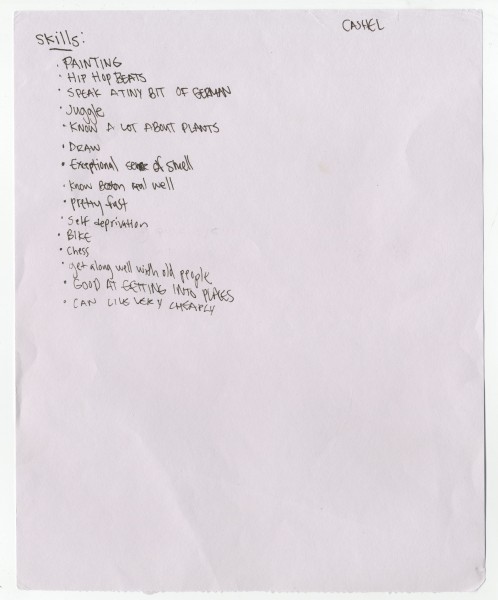 CASHEL
Skills:
· PAINTING
· HIP HOP BEATS
· SPEAK A TINY BIT OF GERMAN
· Juggle
· KNOW A LOT ABOUT PLANTS
· DRAW
· Exceptional sense of smell
· Know Boston real well
· Pretty fast
· Self deprivation
· BIKE
· Chess
· get along well with old people
· GOOD AT GETTING INTO PLACES
· CAN LIVE VERY CHEAPLY